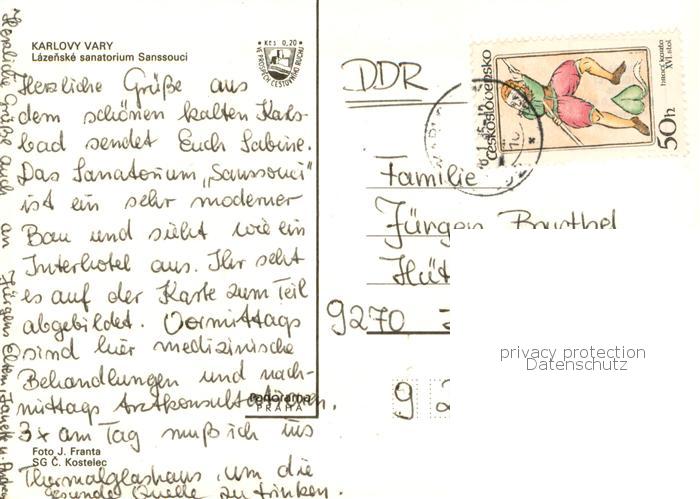 KARLOVY VARY
Lázeňské sanatorium Sanssouci
Kčs 0,20
VE PROSPĚCH CESTOVNÍHO RUCHU
Herzliche Grüße aus
dem schönen kalten Karls-
bad sendet Euch Sabine.
Das Sanatorium „Sanssouci"
ist ein sehr moderner
Bau und sieht wie ein
Interhotel aus. Ihr seht
es auf der Karte zum Teil
abgebildet. Vormittags
sind hier medizinische
Behandlungen und nach-
mittags Arztkonsultationen.
3x am Tag muß ich ins
Thermalglashaus, um die
gesunde Quelle zu trinken.
Herzliche Grüße auch an Jürgens Eltern,
panorama
PRAHA
Foto J. Franta
SG Č. Kostelec
DDR
Československo
hrací karta
XVI. stol.
50h
Familie
Jürgen Barthel
Hüt
9270
9 2
privacy protection
Datenschutz